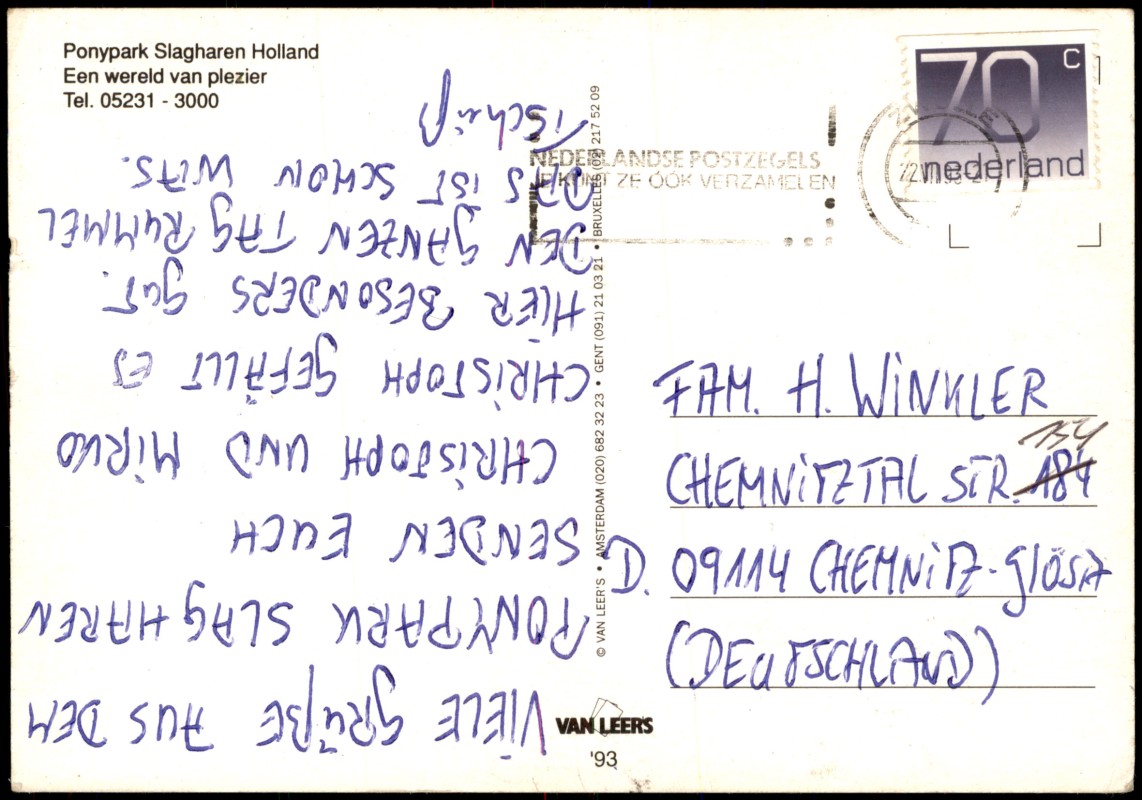 Ponypark Slagharen Holland
Een wereld van plezier
Tel. 05231 - 3000
VIELE GRÜßE AUS DEM
PONYPARK SLAGHAREN
SENDEN EUCH
CHRISTOPH UND MIRKO
CHRISTOPH GEFÄLLT ES
HIER BESONDERS GUT.
DEN GANZEN TAG RUMMEL
DAS IST SCHON WAS.
Tschüß
© VAN LEER'S • AMSTERDAM (020) 682 32 23 • GENT (091) 21 03 21 • BRUXELLES (02) 217 52 09
VAN LEER'S
'93
70 C
nederland
NEDERLANDSE POSTZEGELS
JE KUNT ZE ÓÓK VERZAMELEN
FAM. H. WINKLER
CHEMNITZTAL STR. 184 154
D. 09114 CHEMNITZ-GLÖSA
(DEUTSCHLAND)